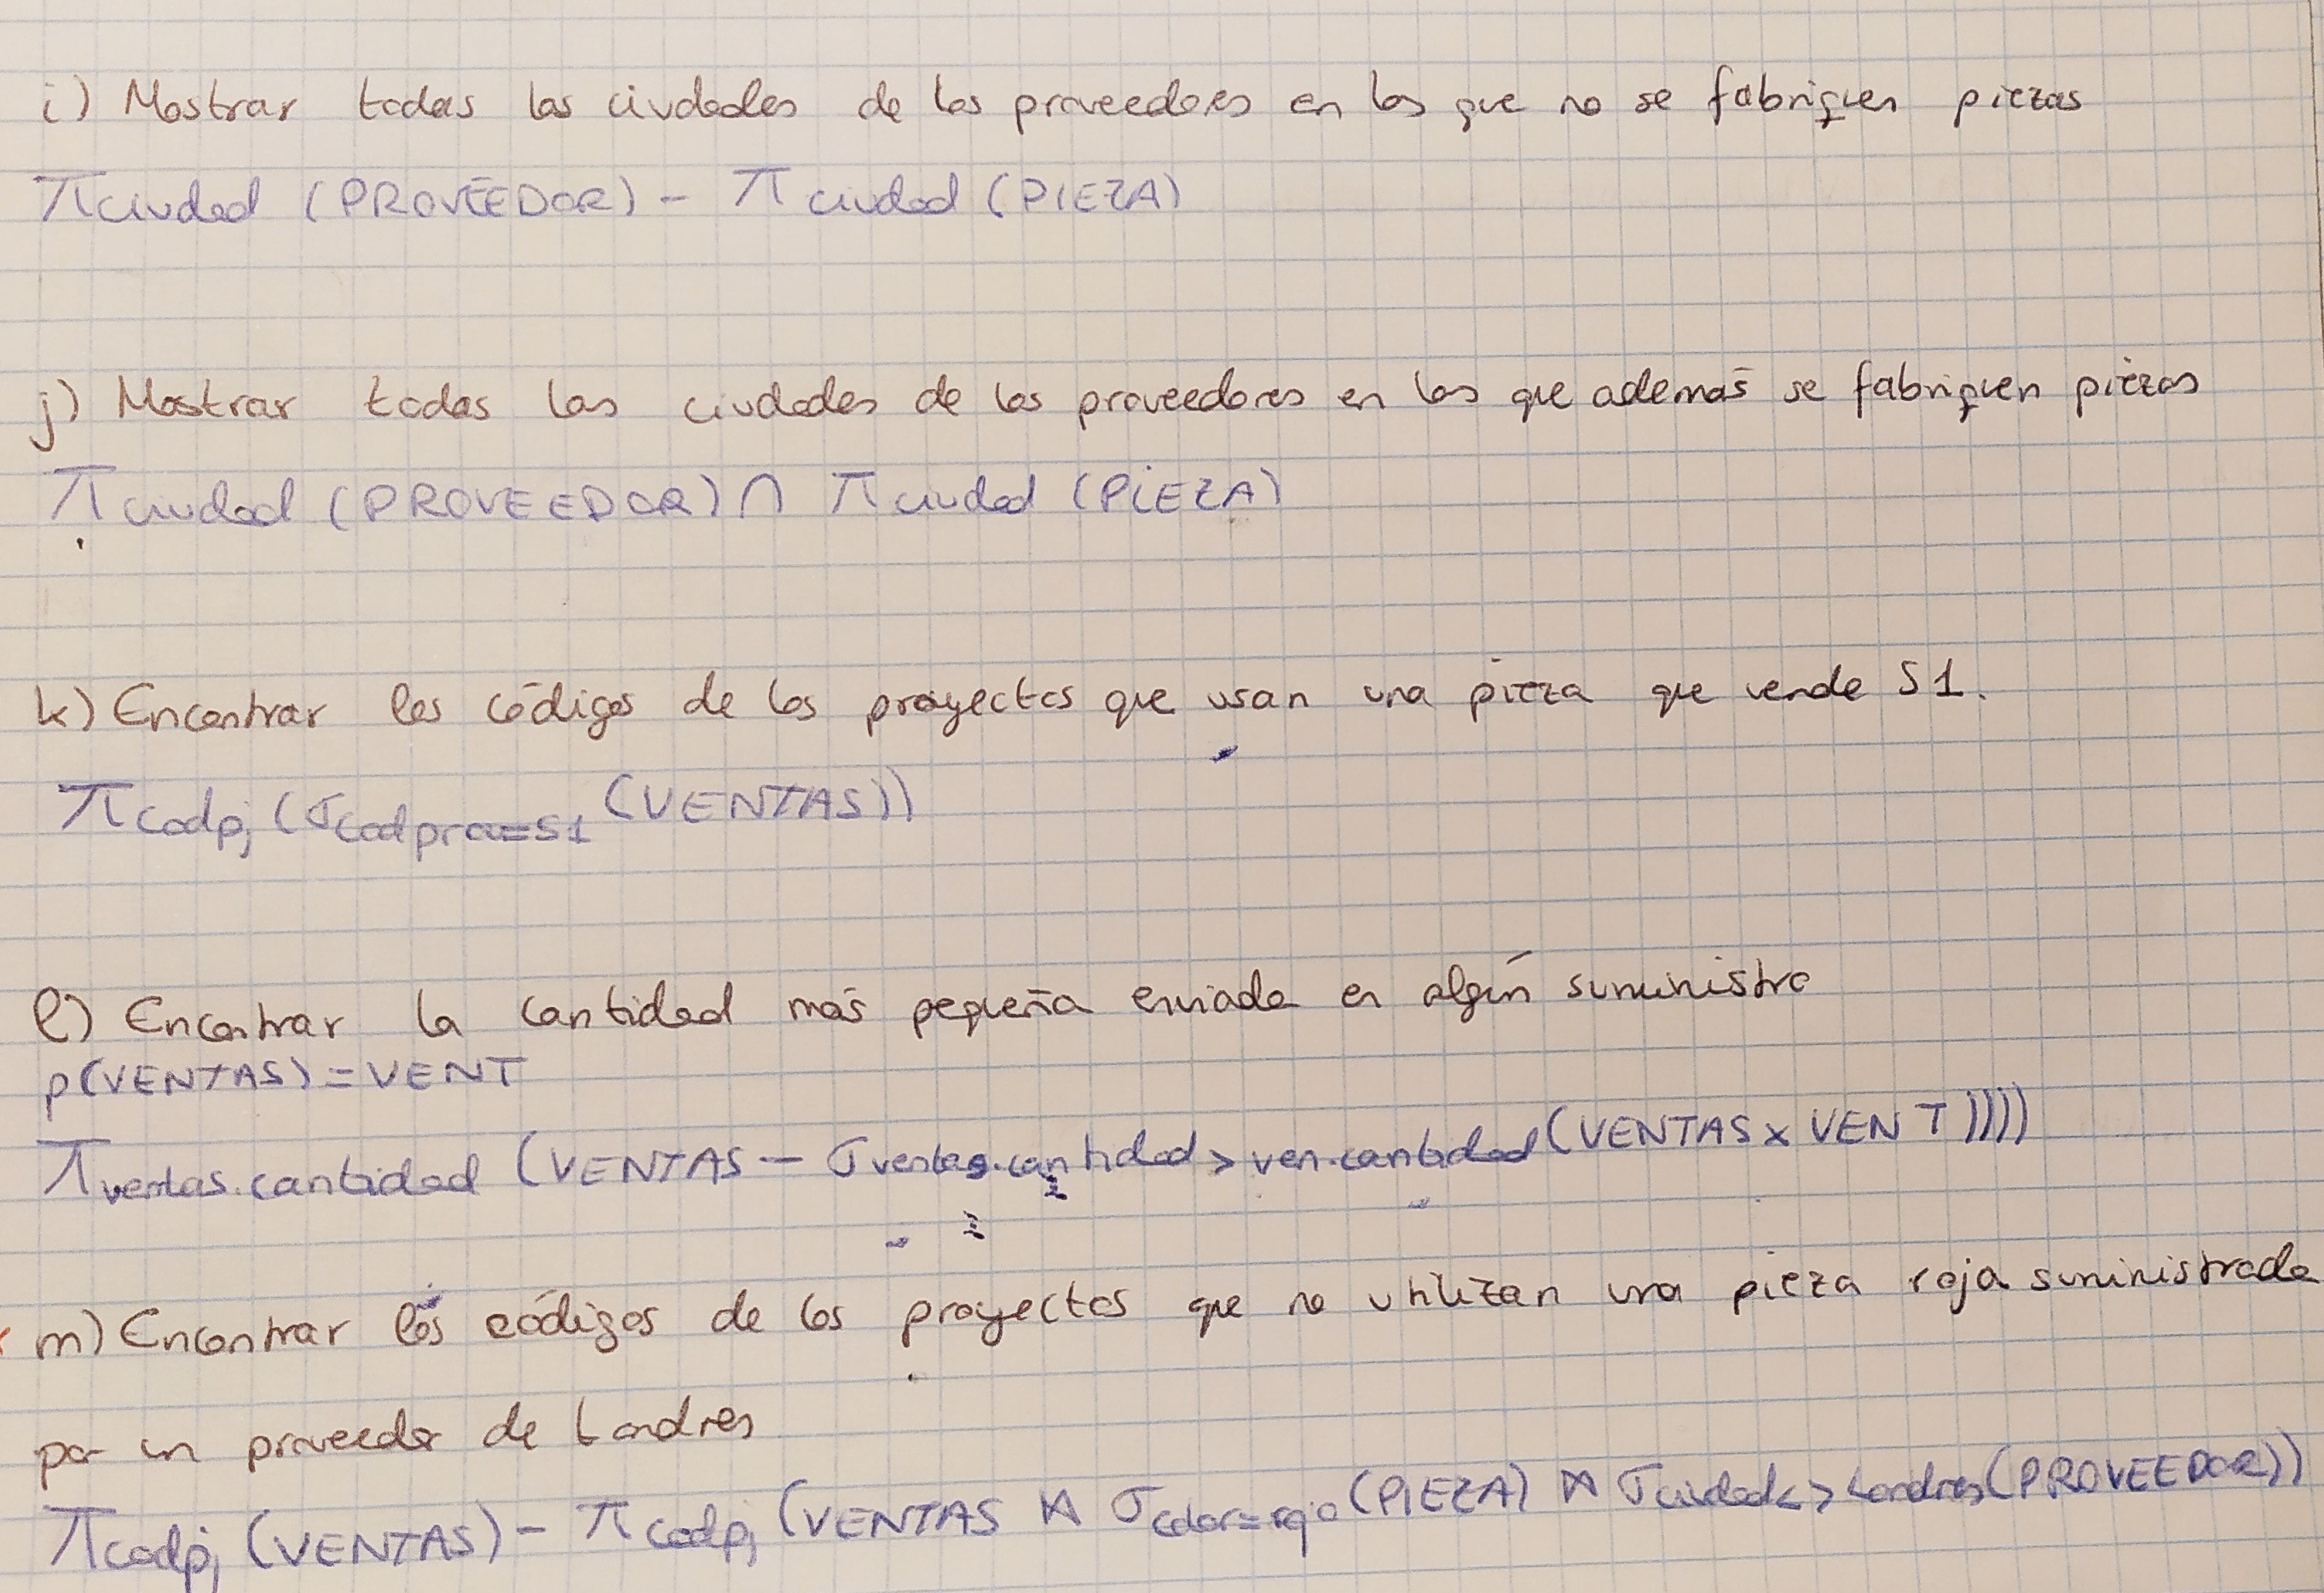 i) Mostrar todas las ciudades de los proveedores en las que no se fabriquen piezas
π ciudad (PROVEEDOR) - π ciudad (PIEZA)
j) Mostrar todas las ciudades de los proveedores en las que además se fabriquen piezas
π ciudad (PROVEEDOR) ∩ π ciudad (PIEZA)
k) Encontrar los códigos de los proyectos que usan una pieza que vende S1.
π codpj (σ codpro=S1 (VENTAS))
l) Encontrar la cantidad más pequeña enviada en algún suministro
ρ(VENTAS) = VENT
π ventas.cantidad (VENTAS - σ ventas.cantidad > ven.cantidad (VENTAS x VENT))))
m) Encontrar los códigos de los proyectos que no utilizan una pieza roja suministrada
por un proveedor de Londres
π codpj (VENTAS) - π codpj (VENTAS ⋈ σ color=rojo (PIEZA) ⋈ σ ciudad<>Londres (PROVEEDOR))